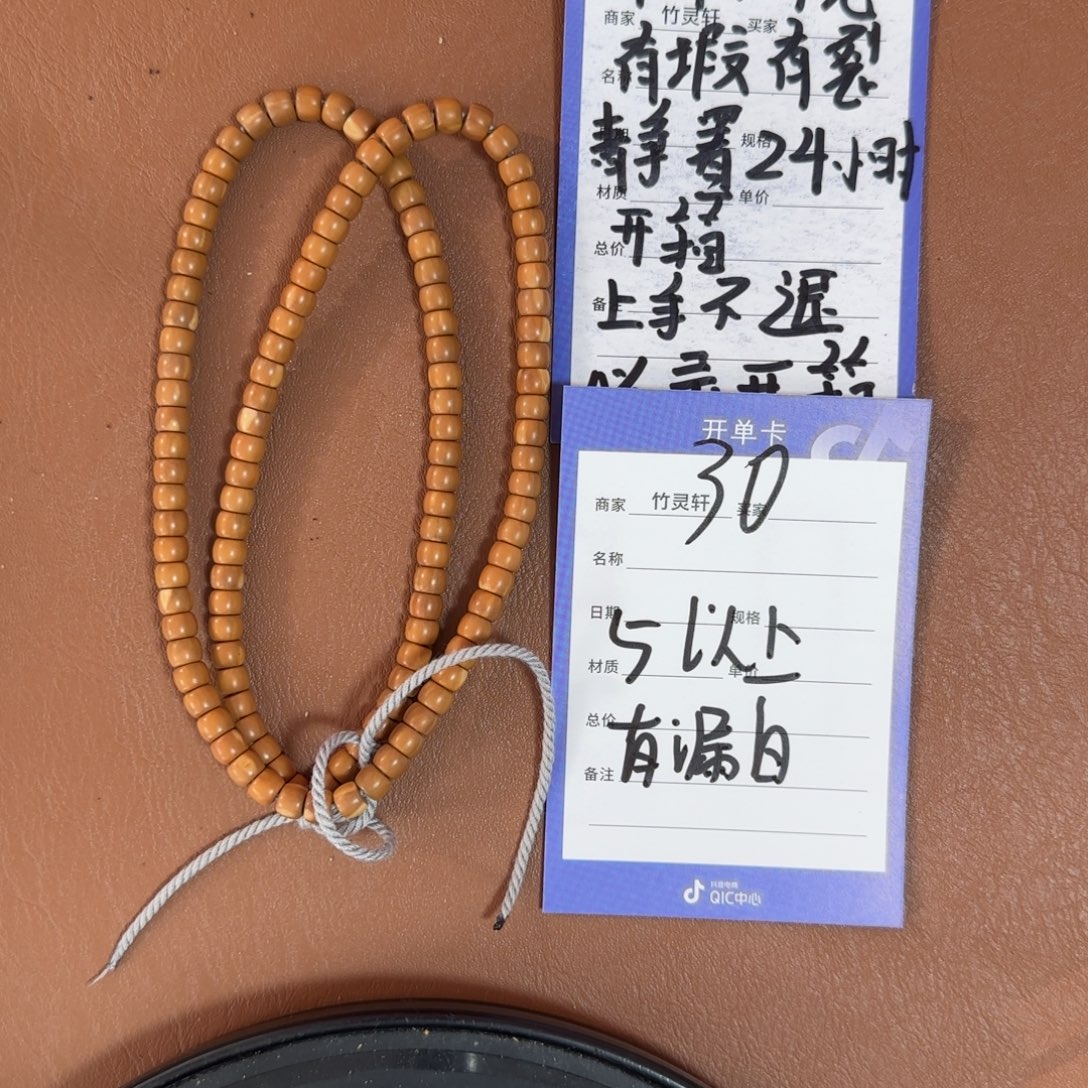 商家 竹灵轩 买家
名称 有瑕有裂
静置24小时
规格
材质 单价
开箱
总价
备注
上手不退
开单卡
30
商家 竹灵轩 买家
名称
日期 规格
5以上
材质 单价
总价
有漏白
备注
抖音电商
QIC中心